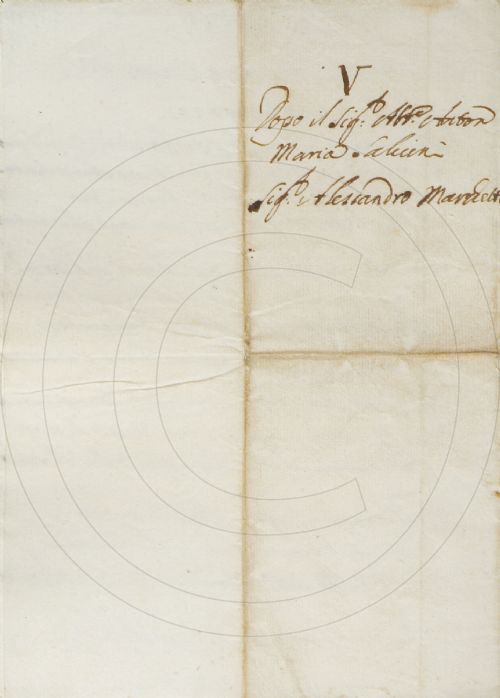 V
Dopo il Sig.r Ab.e Anton
Maria Salvini
Sig.r Alessandro Marchett